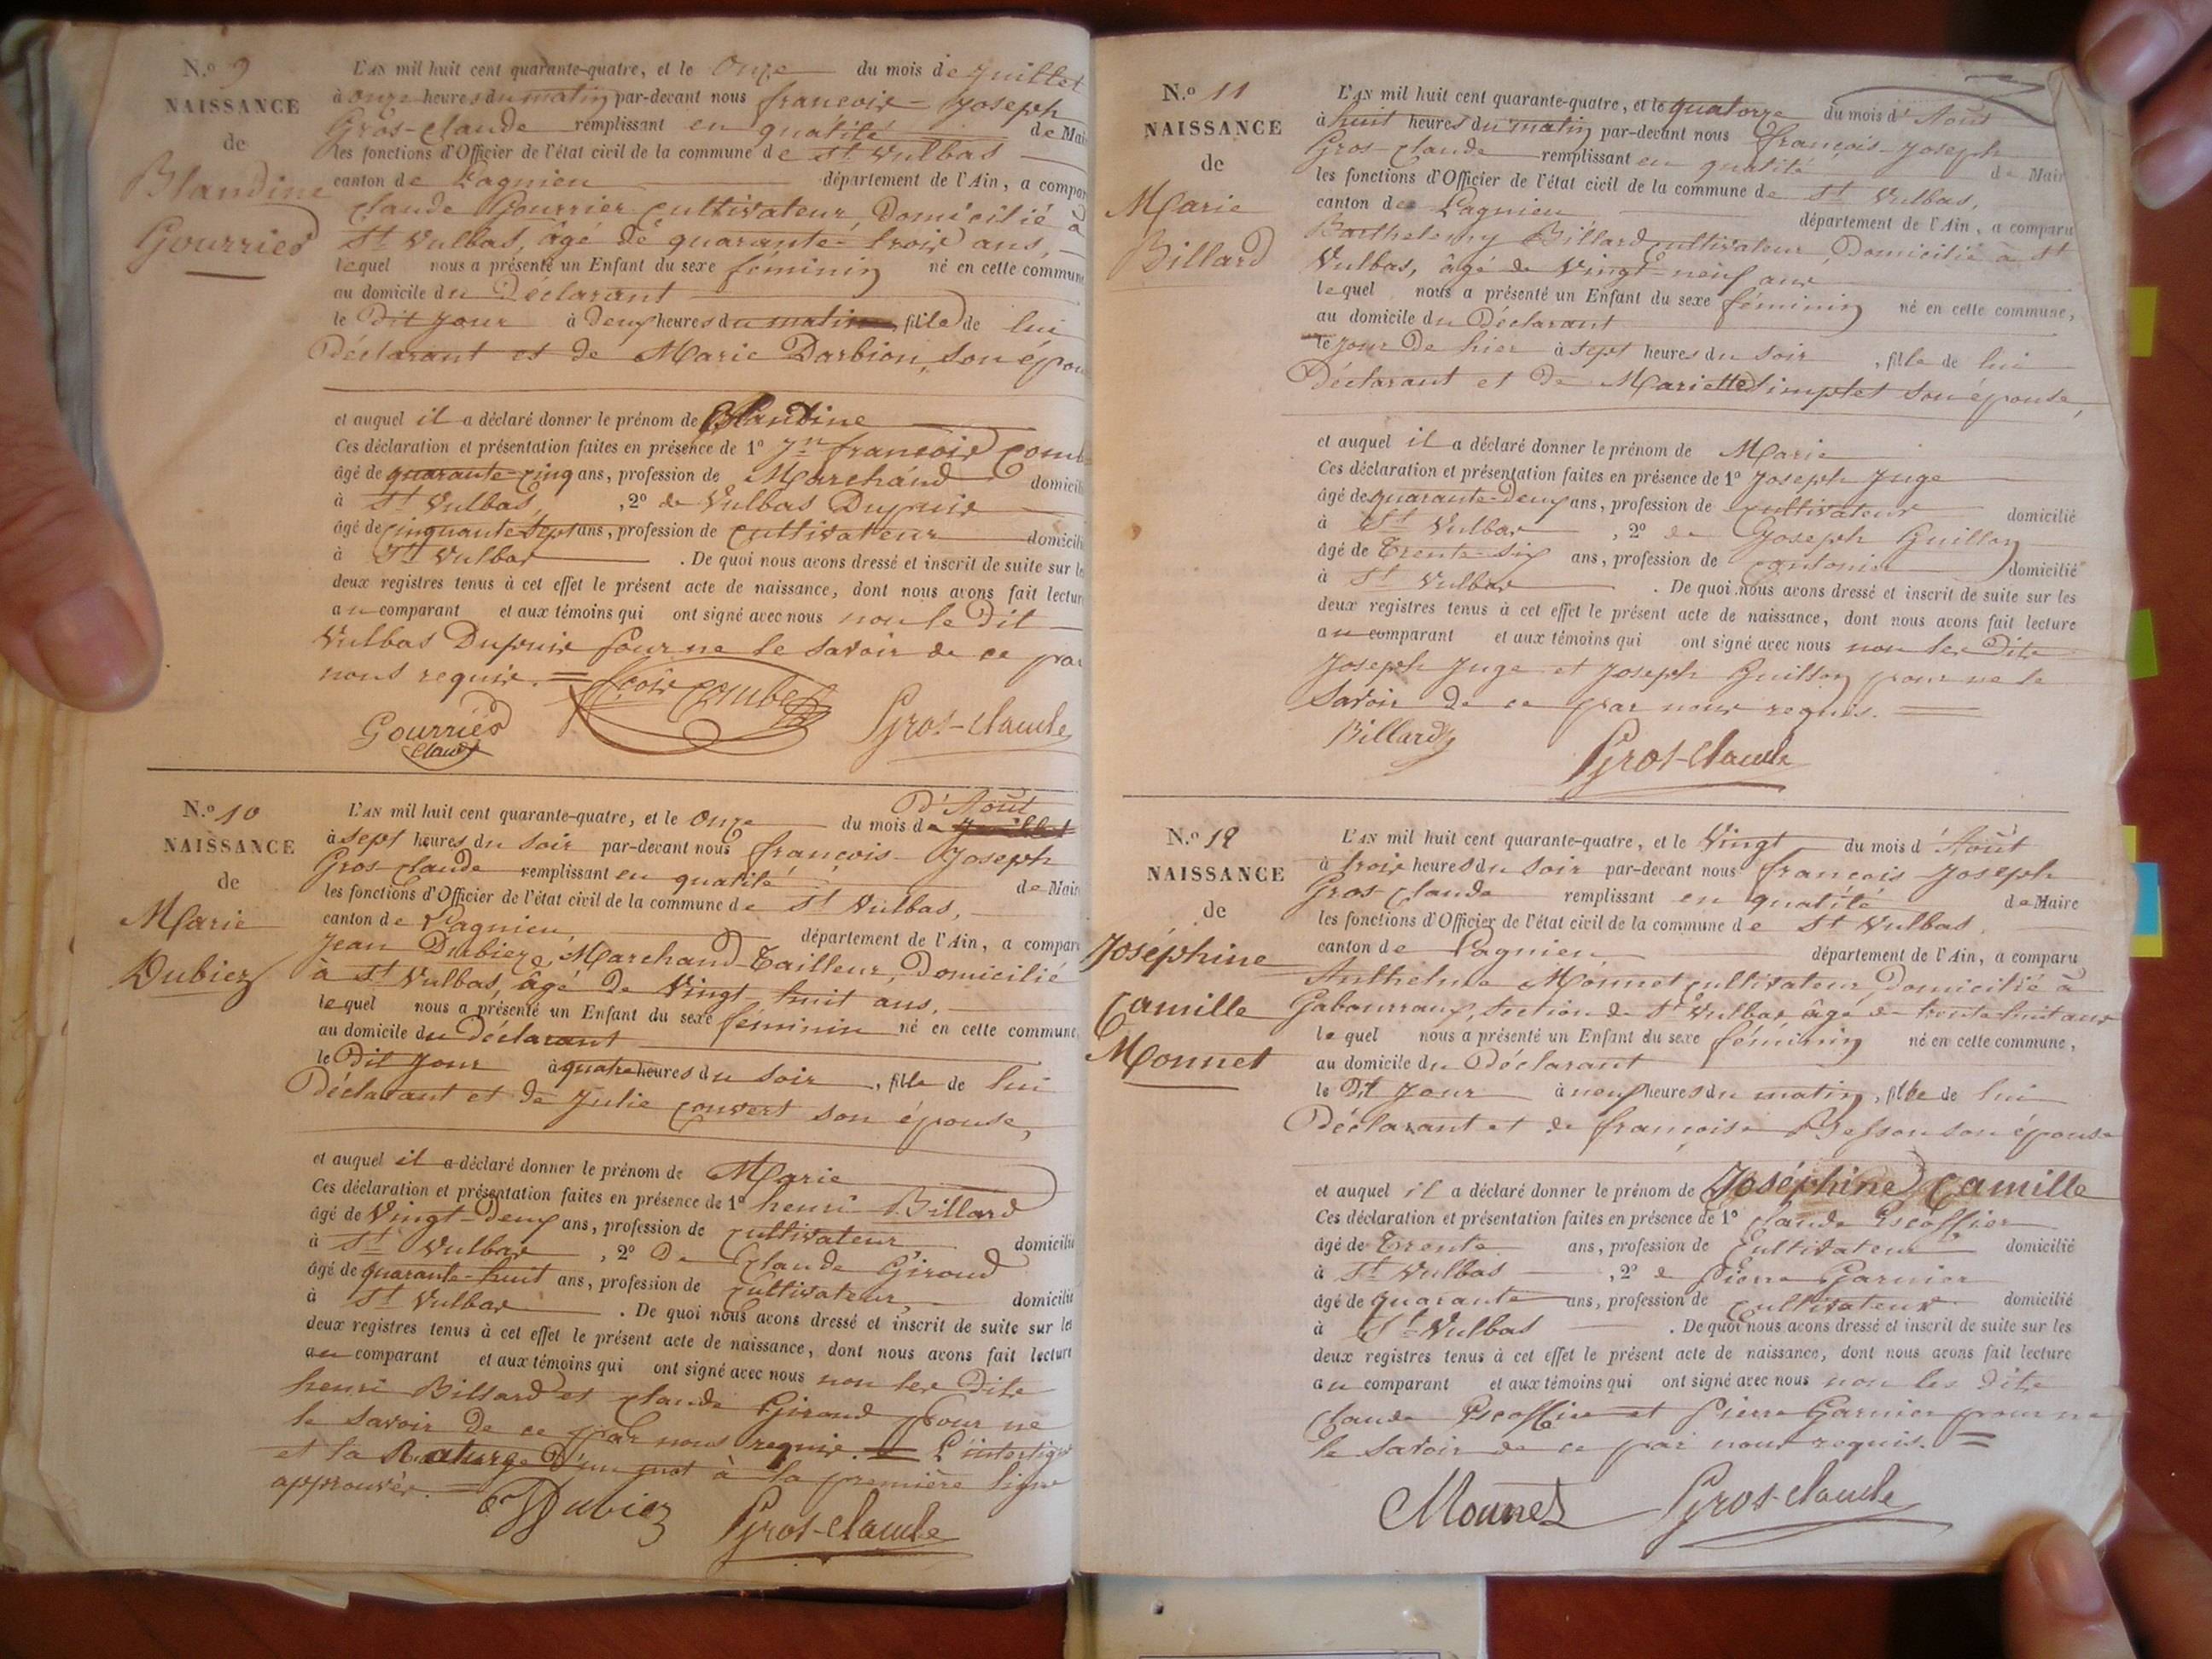 N.º 9
NAISSANCE
de
Blandine
Gourrier
L'AN mil huit cent quarante-quatre, et le Onze du mois de Juillet
à onze heures du matin par-devant nous françois-Joseph
Gros-claude remplissant en qualité de Mai
les fonctions d'Officier de l'état civil de la commune de St Vulbas
canton de Lagnieu département de l'Ain, a compar
claude Gourrier cultivateur, Domicilié à
St Vulbas, âgé de quarante-trois ans,
lequel nous a présenté un Enfant du sexe féminin né en cette commune
au domicile du Déclarant
le dit Jour à deux heures du matin, fille de lui
Déclarant et de Marie Darbion, son épou
et auquel il a déclaré donner le prénom de Blandine
Ces déclaration et présentation faites en présence de 1º Jn françois Comb
âgé de quarante-cinq ans, profession de Marchand domicili
à St Vulbas, 2º de Vulbas Dupuis
âgé de cinquante sept ans, profession de cultivateur domicili
à St Vulbas. De quoi nous avons dressé et inscrit de suite sur le
deux registres tenus à cet effet le présent acte de naissance, dont nous avons fait lecture
au comparant et aux témoins qui ont signé avec nous non le dit
Vulbas Dupuis pour ne le savoir de ce par
nous requis. = fçois Combe
Gourrier Gros-claude
claude
N.º 10
NAISSANCE
de
Marie
Dubiez
d'Août
L'AN mil huit cent quarante-quatre, et le Onze du mois de Juillet
à sept heures du soir par-devant nous françois-Joseph
Gros-claude remplissant en qualité de Maire
les fonctions d'Officier de l'état civil de la commune de St Vulbas,
canton de Lagnieu, département de l'Ain, a compar
Jean Dubiez, Marchand-Tailleur, Domicilié
à St Vulbas, âgé de Vingt huit ans,
lequel nous a présenté un Enfant du sexe féminin né en cette commune,
au domicile du déclarant
le Dit Jour à quatre heures du soir, fille de lui
Déclarant et de Julie Convert son épouse,
et auquel il a déclaré donner le prénom de Marie
Ces déclaration et présentation faites en présence de 1º henri Billard
âgé de Vingt-deux ans, profession de cultivateur domicilié
à St Vulbas, 2º De Claude Giroud
âgé de quarante-huit ans, profession de Cultivateur, domicilié
à St Vulbas. De quoi nous avons dressé et inscrit de suite sur les
deux registres tenus à cet effet le présent acte de naissance, dont nous avons fait lecture
au comparant et aux témoins qui ont signé avec nous non les Dits
henri Billard et claude Giroud pour ne
le savoir de ce par nous requis. = L'interligne
et la Rature d'un mot à la première ligne
approuvés. =
Dubiez Gros-claude
N.º 11
NAISSANCE
de
Marie
Billard
L'AN mil huit cent quarante-quatre, et le quatorze du mois d'Août
à huit heures du matin par-devant nous françois-Joseph
Gros-claude remplissant en qualité de Mair
les fonctions d'Officier de l'état civil de la commune de St Vulbas,
canton de Lagnieu département de l'Ain, a comparu
Barthelemy Billard cultivateur, Domicilié à St
Vulbas, âgé de Vingt-neuf ans
lequel nous a présenté un Enfant du sexe féminin né en cette commune,
au domicile du Déclarant
le jour de hier à sept heures du soir, fille de lui
Déclarant et de Mariette Simplet son épouse,
et auquel il a déclaré donner le prénom de Marie
Ces déclaration et présentation faites en présence de 1º Joseph Juge
âgé de quarante-deux ans, profession de cultivateur domicilié
à St Vulbas, 2º de Joseph Guillon
âgé de Trente-six ans, profession de cantonier domicilié
à St Vulbas. De quoi nous avons dressé et inscrit de suite sur les
deux registres tenus à cet effet le présent acte de naissance, dont nous avons fait lecture
au comparant et aux témoins qui ont signé avec nous non les Dits
Joseph Juge et Joseph Guillon pour ne le
savoir de ce par nous requis. =
Billard Gros-claude
N.º 12
NAISSANCE
de
Joséphine
Camille
Monnet
L'AN mil huit cent quarante-quatre, et le Vingt du mois d'Août
à trois heures du soir par-devant nous françois Joseph
Gros-claude remplissant en qualité de Maire
les fonctions d'Officier de l'état civil de la commune de St Vulbas,
canton de Lagnieu, département de l'Ain, a comparu
Anthelme Monnet cultivateur, Domicilié à
Gabourraux, Section de St Vulbas âgé de trente-huit ans
lequel nous a présenté un Enfant du sexe féminin né en cette commune,
au domicile du Déclarant
le Dit Jour à neuf heures du matin, fille de lui
Déclarant et de françoise Besson son épouse
et auquel il a déclaré donner le prénom de Joséphine Camille
Ces déclaration et présentation faites en présence de 1º Claude Escoffier
âgé de Trente ans, profession de Cultivateur domicilié
à St Vulbas, 2º de Pierre Garnier
âgé de quarante ans, profession de cultivateur domicilié
à St Vulbas. De quoi nous avons dressé et inscrit de suite sur les
deux registres tenus à cet effet le présent acte de naissance, dont nous avons fait lecture
au comparant et aux témoins qui ont signé avec nous non les dits
Claude Escoffier et Pierre Garnier pour ne
le savoir de ce par nous requis. =
Monnet Gros-claude